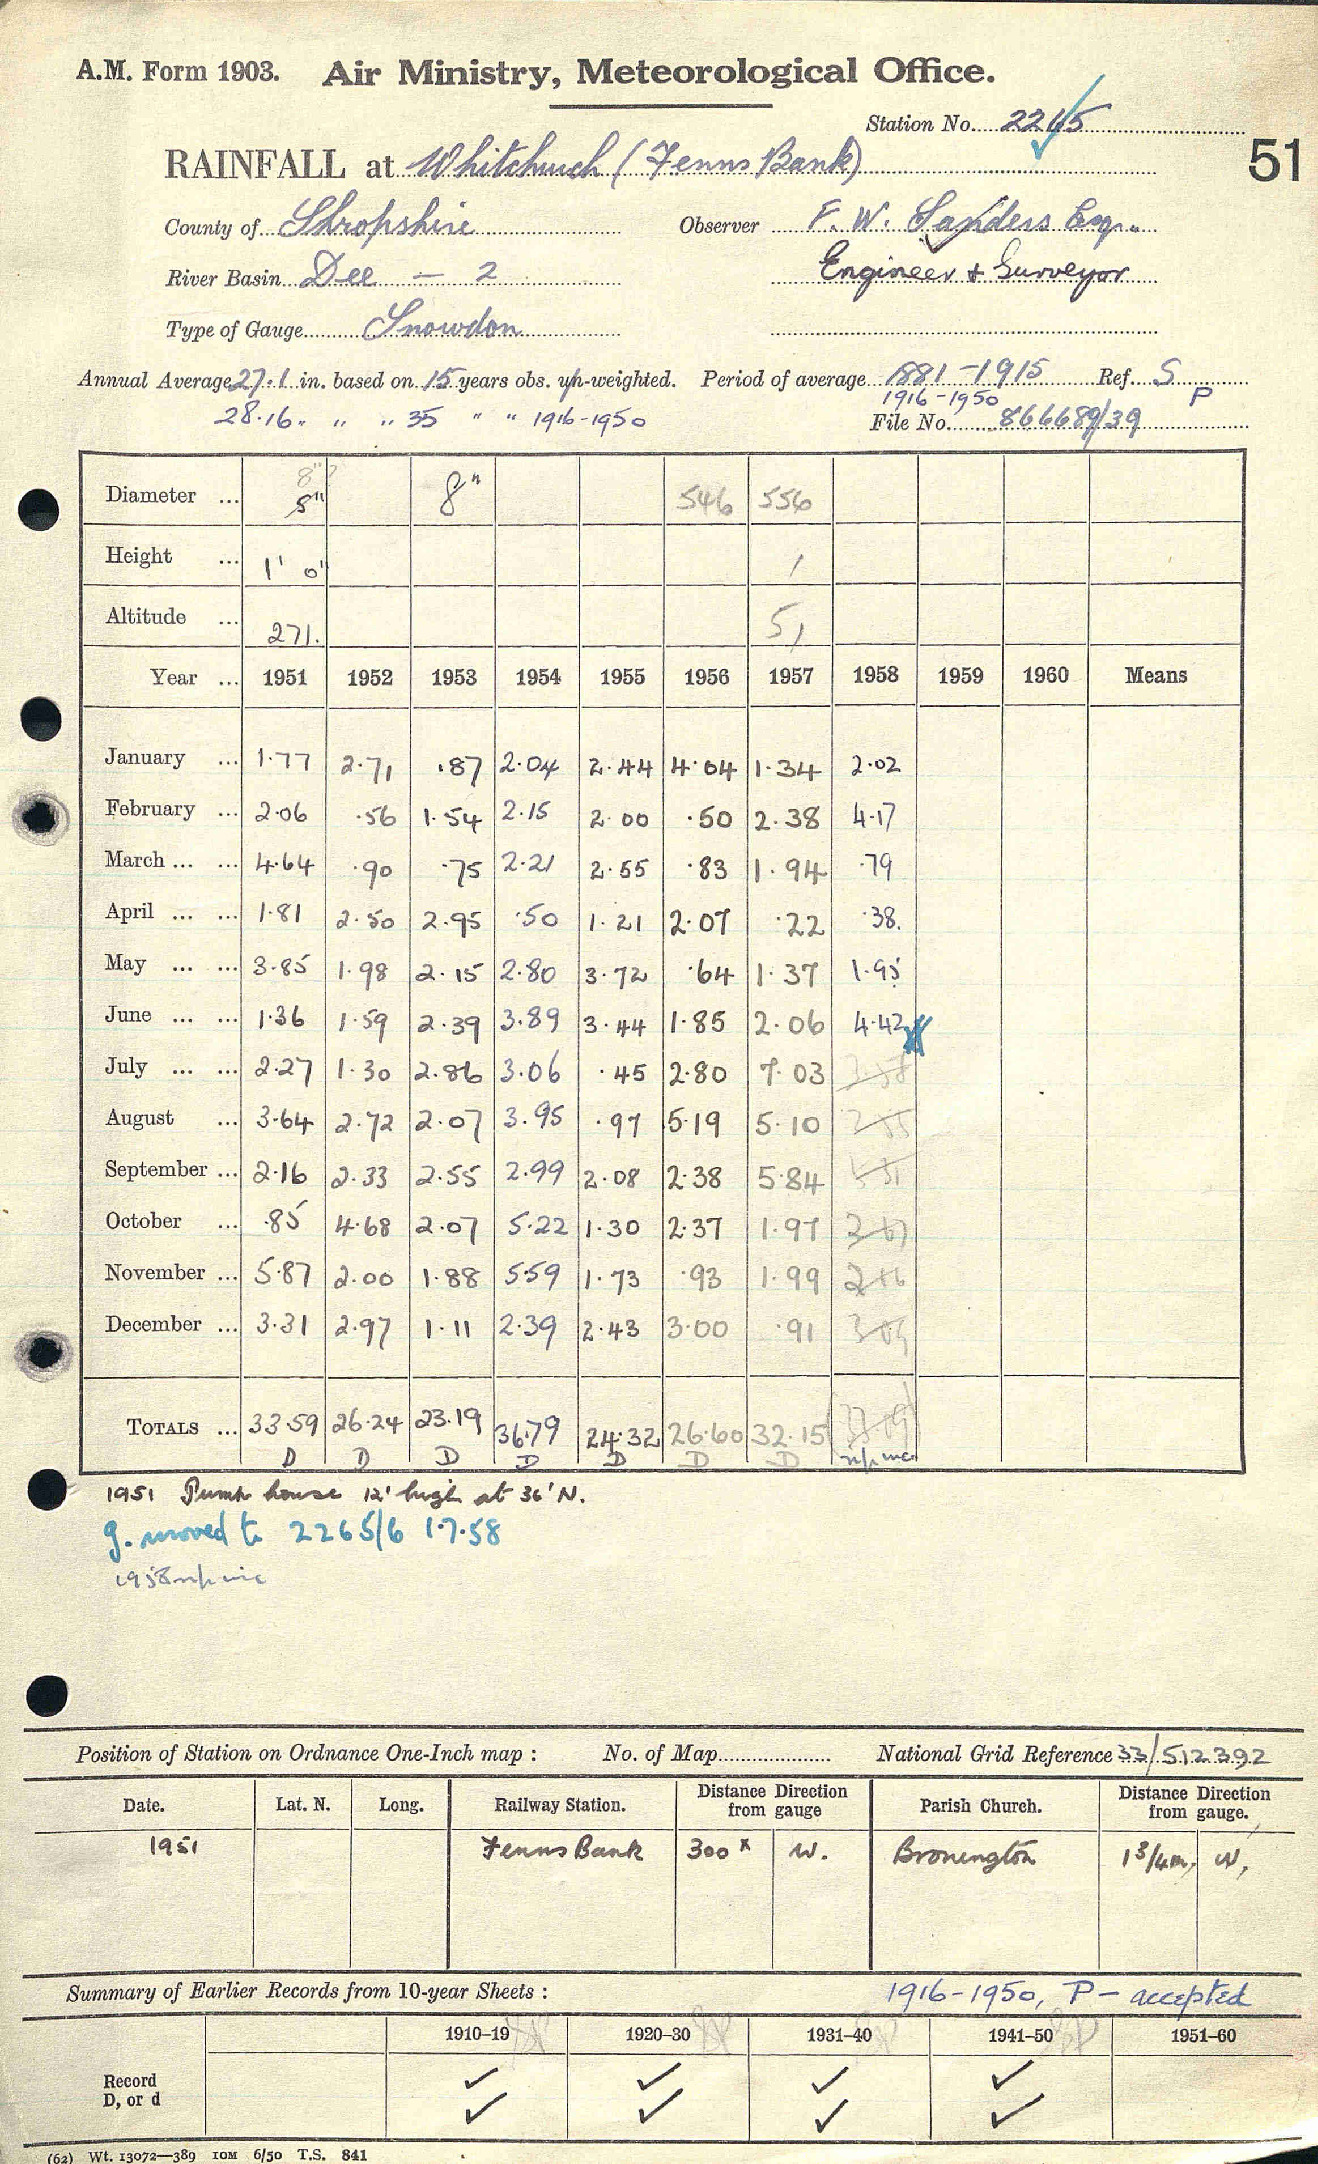 A.M. Form 1903. Air Ministry, Meteorological Office.
Station No. 2265
51
RAINFALL at Whitchurch (Fenns Bank)
County of Shropshire Observer F. W. Sanders Esq.
River Basin Dee - 2 Engineer + Surveyor
Type of Gauge Snowdon
Annual Average 27.1 in. based on 15 years obs. un-weighted. Period of average 1881-1915 Ref. S
1916-1950 P
28.16 " " " 35 " " 1916-1950 File No. 866689/39
Diameter ... 8"? 5" 8" 546 556
Height ... 1' 0" 1
Altitude ... 271. 51
Year ... 1951 1952 1953 1954 1955 1956 1957 1958 1959 1960 Means
January ... 1.77 2.71 .87 2.04 2.44 4.04 1.34 2.02
February ... 2.06 .56 1.54 2.15 2.00 .50 2.38 4.17
March ... ... 4.64 .90 .75 2.21 2.55 .83 1.94 .79
April ... ... 1.81 2.50 2.95 .50 1.21 2.07 .22 .38.
May ... ... 3.85 1.98 2.15 2.80 3.72 .64 1.37 1.95
June ... ... 1.36 1.59 2.39 3.89 3.44 1.85 2.06 4.42
July ... ... 2.27 1.30 2.86 3.06 .45 2.80 7.03
August ... 3.64 2.72 2.07 3.95 .97 5.19 5.10
September ... 2.16 2.33 2.55 2.99 2.08 2.38 5.84
October ... .85 4.68 2.07 5.22 1.30 2.37 1.97
November ... 5.87 2.00 1.88 5.59 1.73 .93 1.99
December ... 3.31 2.97 1.11 2.39 2.43 3.00 .91
TOTALS ... 33.59 26.24 23.19 36.79 24.32 26.60 32.15
D D D D D D D n/p inc
1951 Pump house 12' high at 36' N.
g. moved to 2265/6 1.7.58
1958 n/p inc
Position of Station on Ordnance One-Inch map : No. of Map National Grid Reference 33/512392
Date. Lat. N. Long. Railway Station. Distance Direction from gauge Parish Church. Distance Direction from gauge.
1951 Fenns Bank 300 x W. Bronington 1 3/4m, W,
Summary of Earlier Records from 10-year Sheets : 1916-1950, P - accepted
1910-19 1920-30 1931-40 1941-50 1951-60
Record ✓ ✓ ✓ ✓
D, or d ✓ ✓ ✓ ✓
(62) Wt. 13072—389 10M 6/50 T.S. 841